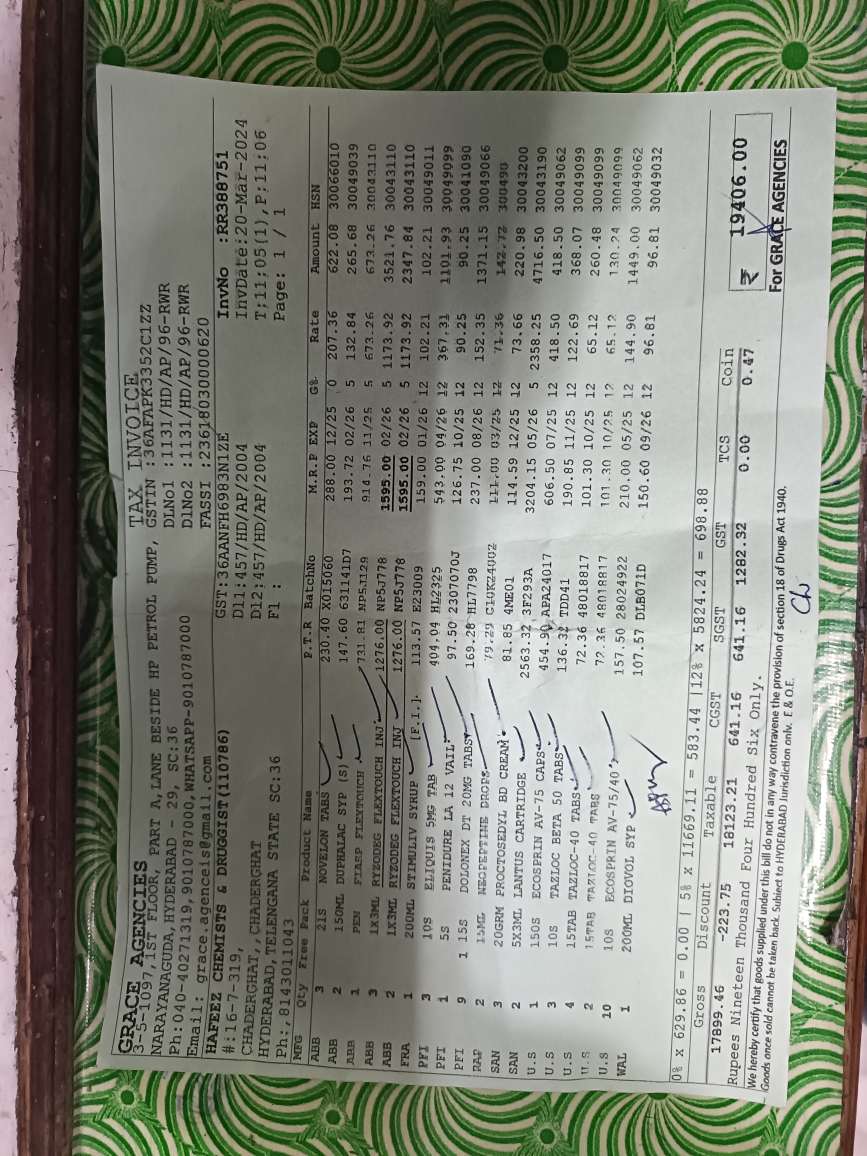 TAX INVOICE
GRACE AGENCIES
3-5-1097,1ST FLOOR, PART A,LANE BESIDE HP PETROL PUMP,
NARAYANAGUDA,HYDERABAD - 29, SC:36
Ph:040-40271319,9010787000,WHATSAPP-9010787000
Email: grace.agenceis@gmail.com
GSTIN :36AFAPK3352C1ZZ
DLNo1 :1131/HD/AP/96-RWR
DlNo2 :1131/HD/AP/96-RWR
FASSI :23618030000620
HAFEEZ CHEMISTS & DRUGGIST(110786)
#:16-7-319,
CHADERGHAT,,CHADERGHAT
HYDERABAD,TELENGANA STATE SC:36
Ph:,8143011043
GST:36AANFH6983N1ZE
Dl1:457/HD/AP/2004
Dl2:457/HD/AP/2004
Fl :
InvNo :RR388751
InvDate:20-Mar-2024
T;11;05(1),P;11:06
Page: 1 / 1
MFG Qty Free Pack Product Name P.T.R BatchNo M.R.P EXP G% Rate Amount HSN
ABB 3 21S NOVELON TABS 230.40 X015060 288.00 12/25 0 207.36 622.08 30066010
ABB 2 150ML DUPHALAC SYP (S) 147.60 631141D7 193.72 02/26 5 132.84 265.68 30049039
ABB 1 PEN FIASP FLEXTOUCH 731.81 NP5J129 914.76 11/25 5 673.26 673.26 30043110
ABB 3 1X3ML RYZODEG FLEXTOUCH INJ 1276.00 NP5J778 1595.00 02/26 5 1173.92 3521.76 30043110
ABB 2 1X3ML RYZODEG FLEXTOUCH INJ 1276.00 NP5J778 1595.00 02/26 5 1173.92 2347.84 30043110
FRA 1 200ML STIMULIV SYRUP [F.I]. 113.57 E23009 159.00 01/26 12 102.21 102.21 30049011
PFI 3 10S ELIQUIS 5MG TAB 404.04 HL2325 543.00 04/26 12 367.31 1101.93 30049099
PFI 1 5S PENIDURE LA 12 VAIL 97.50 2307070J 126.75 10/25 12 90.25 90.25 30041090
PFI 9 1 15S DOLONEX DT 20MG TABS 169.28 HL7798 237.00 08/26 12 152.35 1371.15 30049066
RAP 2 15ML NEOPEPTINE DROPS 79.29 111.00 03/25 12 71.36 142.72 300490
SAN 3 20GRM PROCTOSEDYL BD CREAM 81.85 4ME01 114.59 12/25 12 73.66 220.98 30043200
SAN 2 5X3ML LANTUS CARTRIDGE 2563.32 3F293A 3204.15 05/26 5 2358.25 4716.50 30043190
U.S 1 150S ECOSPRIN AV-75 CAPS 454.90 APA24017 606.50 07/25 12 418.50 418.50 30049062
U.S 3 10S TAZLOC BETA 50 TABS 136.32 TDD41 190.85 11/25 12 122.69 368.07 30049099
U.S 4 15TAB TAZLOC-40 TABS 72.36 48018817 101.30 10/25 12 65.12 260.48 30049099
U.S 2 15TAB TAZLOC-40 TABS 72.36 48018817 101.30 10/25 12 65.12 130.24 30049099
U.S 10 10S ECOSPRIN AV-75/40 157.50 28024922 210.00 05/25 12 144.90 1449.00 30049062
WAL 1 200ML DIOVOL SYP 107.57 DLB071D 150.60 09/26 12 96.81 96.81 30049032
0% x 629.86 = 0.00 | 5% x 11669.11 = 583.44 |12% x 5824.24 = 698.88
Gross Discount Taxable CGST SGST GST TCS Coin
17899.46 -223.75 18123.21 641.16 641.16 1282.32 0.00 0.47
₹ 19406.00
Rupees Nineteen Thousand Four Hundred Six Only.
We hereby certify that goods supplied under this bill do not in any way contravene the provision of section 18 of Drugs Act 1940.
Goods once sold cannot be taken back. Subject to HYDERABAD Jurisdiction only. E & O.E.
For GRACE AGENCIES